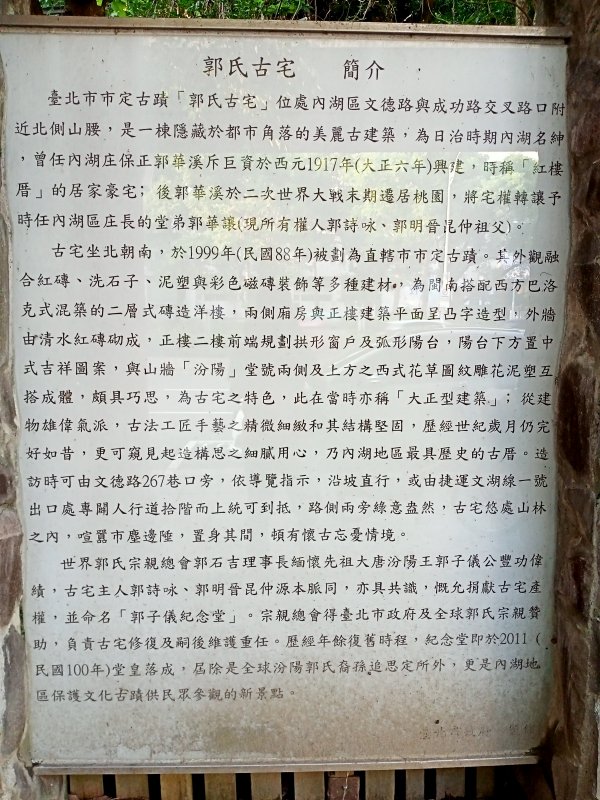 郭氏古宅 簡介
臺北市市定古蹟「郭氏古宅」位處內湖區文德路與成功路交叉路口附
近北側山腰，是一棟隱藏於都市角落的美麗古建築，為日治時期內湖名紳
，曾任內湖庄保正郭華溪斥巨資於西元1917年(大正六年)興建，時稱「紅樓
厝」的居家豪宅；後郭華溪於二次世界大戰末期遷居桃園，將宅權轉讓予
時任內湖區庄長的堂弟郭華讓(現所有權人郭詩咏、郭明晉昆仲祖父)。
古宅坐北朝南，於1999年(民國88年)被劃為直轄市市定古蹟。其外觀融
合紅磚、洗石子、泥塑與彩色磁磚裝飾等多種建材，為閩南搭配西方巴洛
克式混築的二層式磚造洋樓，兩側廂房與正樓建築平面呈凸字造型，外牆
由清水紅磚砌成，正樓二樓前端規劃拱形窗戶及弧形陽台，陽台下方置中
式吉祥圖案，與山牆「汾陽」堂號兩側及上方之西式花草圖紋雕花泥塑互
搭成體，頗具巧思，為古宅之特色，此在當時亦稱「大正型建築」；從建
物雄偉氣派，古法工匠手藝之精微細緻和其結構堅固，歷經世紀歲月仍完
好如昔，更可窺見起造構思之細膩用心，乃內湖地區最具歷史的古厝。造
訪時可由文德路267巷口旁，依導覽指示，沿坡直行，或由捷運文湖線一號
出口處專闢人行道拾階而上統可到抵，路側兩旁綠意盎然，古宅悠處山林
之內，喧囂市塵邊陲，置身其間，頓有懷古忘憂情境。
世界郭氏宗親總會郭石吉理事長緬懷先祖大唐汾陽王郭子儀公豐功偉
績，古宅主人郭詩咏、郭明晉昆仲源本脈同，亦具共識，慨允捐獻古宅產
權，並命名「郭子儀紀念堂」。宗親總會得臺北市政府及全球郭氏宗親贊
助，負責古宅修復及嗣後維護重任。歷經年餘復舊時程，紀念堂即於2011（
民國100年)堂皇落成，屆除是全球汾陽郭氏裔孫追思定所外，更是內湖地
區保護文化古蹟供民眾參觀的新景點。